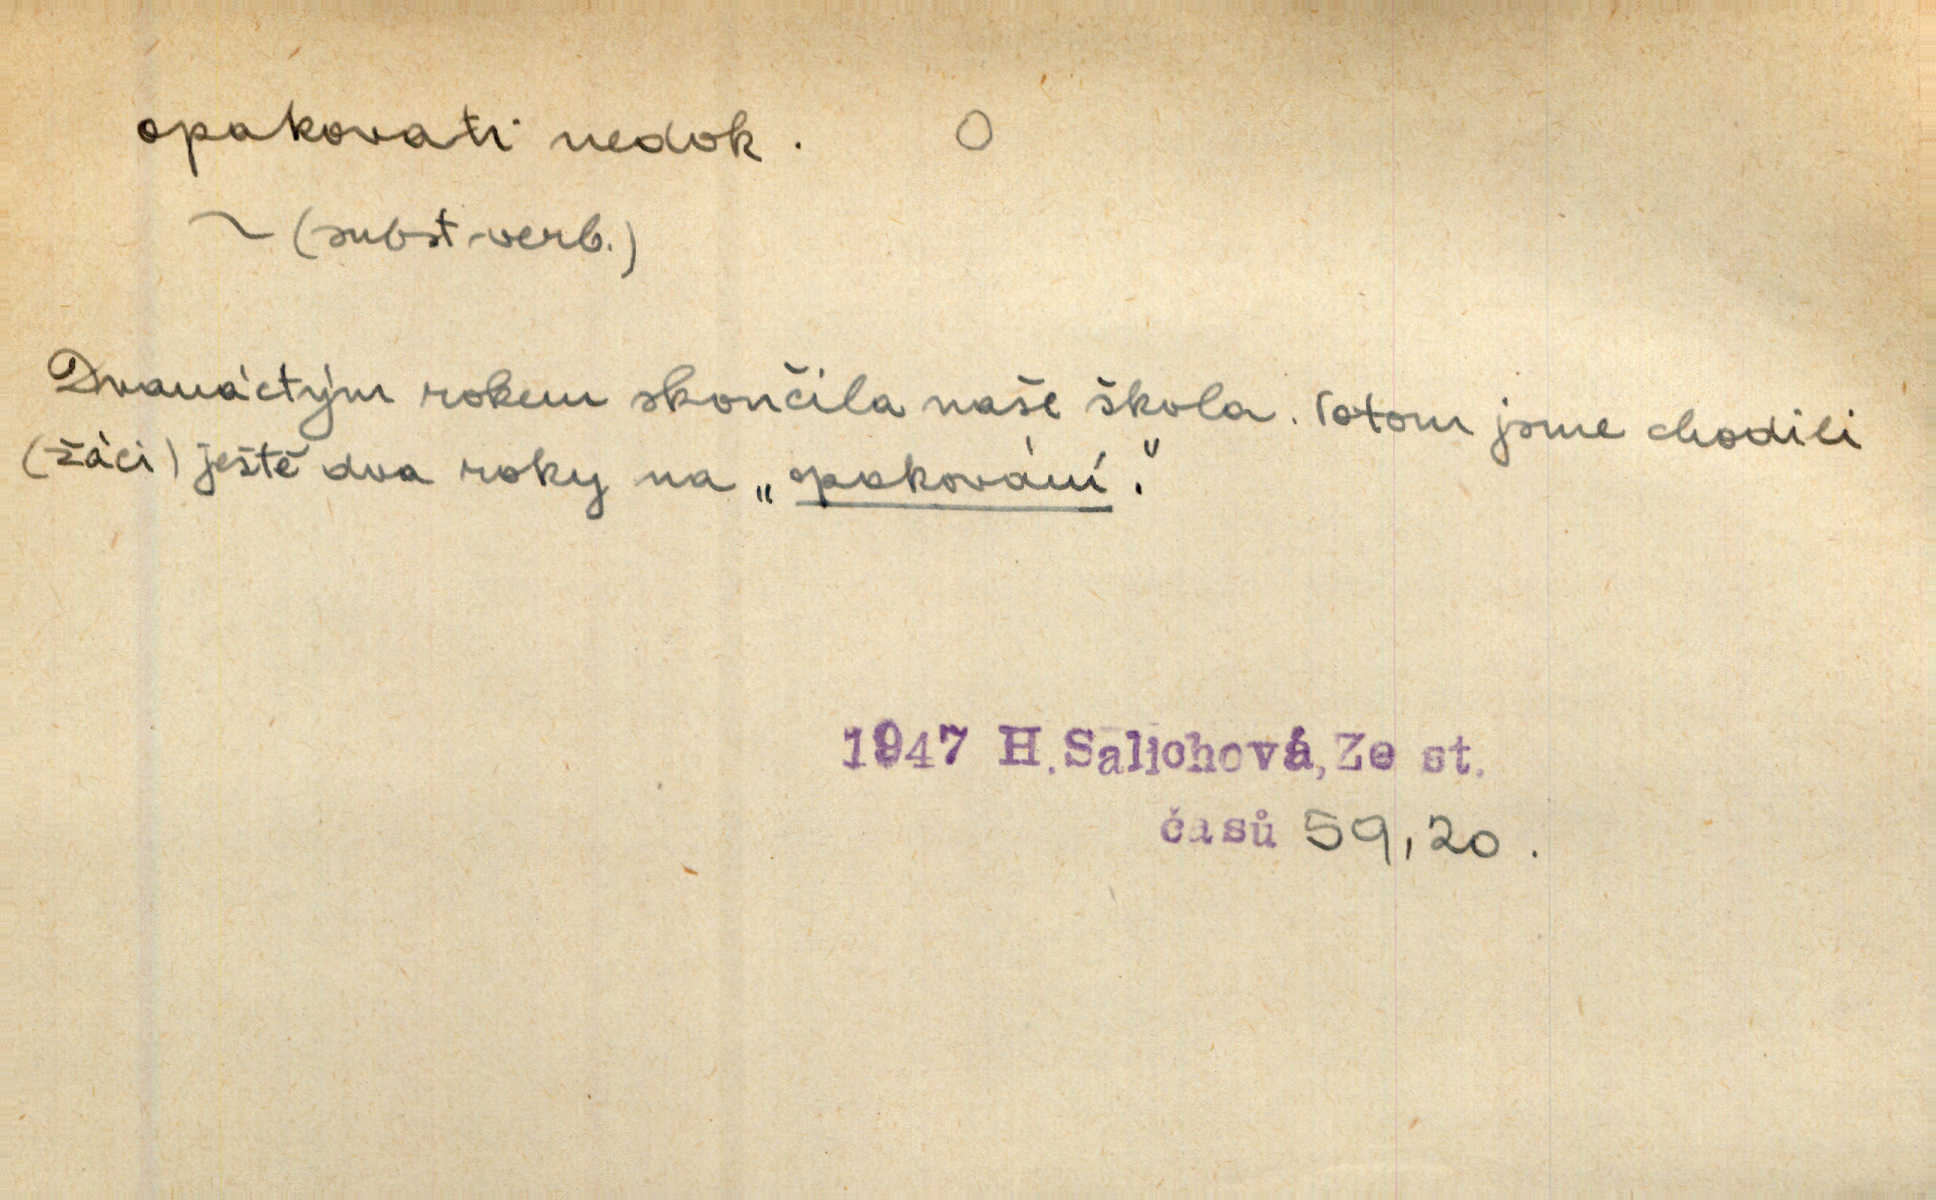 opakovati nedok. O
~ (subst. verb.)
Dvanáctým rokem skončila naše škola. Potom jsme chodili
(žáci) ještě dva roky na „opakování."
1947 H.Salichová, Ze st.
časů 59,20.